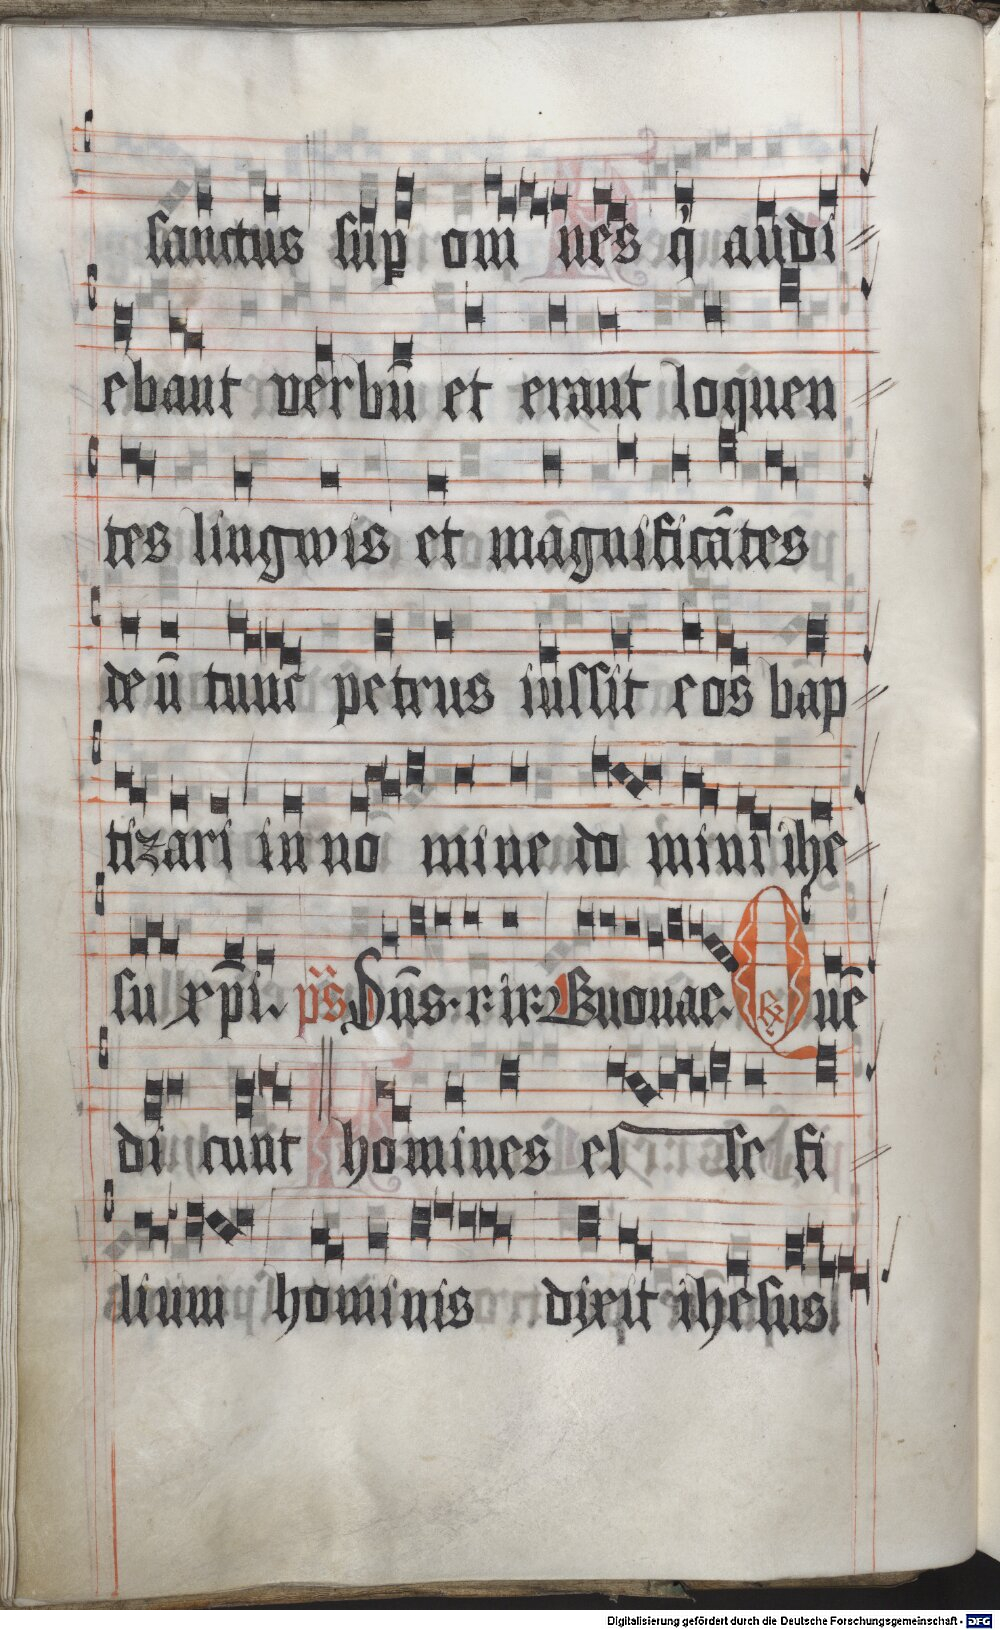 sanctus sup om nes q audi
ebant verbū et erant loquen
tes lingwis et magnificātes
deū tunc petrus iussit eos bap
tizari in no mine do mini ihe
su xp̄i. ps Dn̄s. r. ir. Euouae. Quē
di cunt homines es se fi
lium hominis dixit ihesus
Digitalisierung gefördert durch die Deutsche Forschungsgemeinschaft - DFG